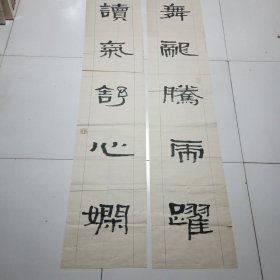 舞龍騰虎躍
讀氣舒心嫻